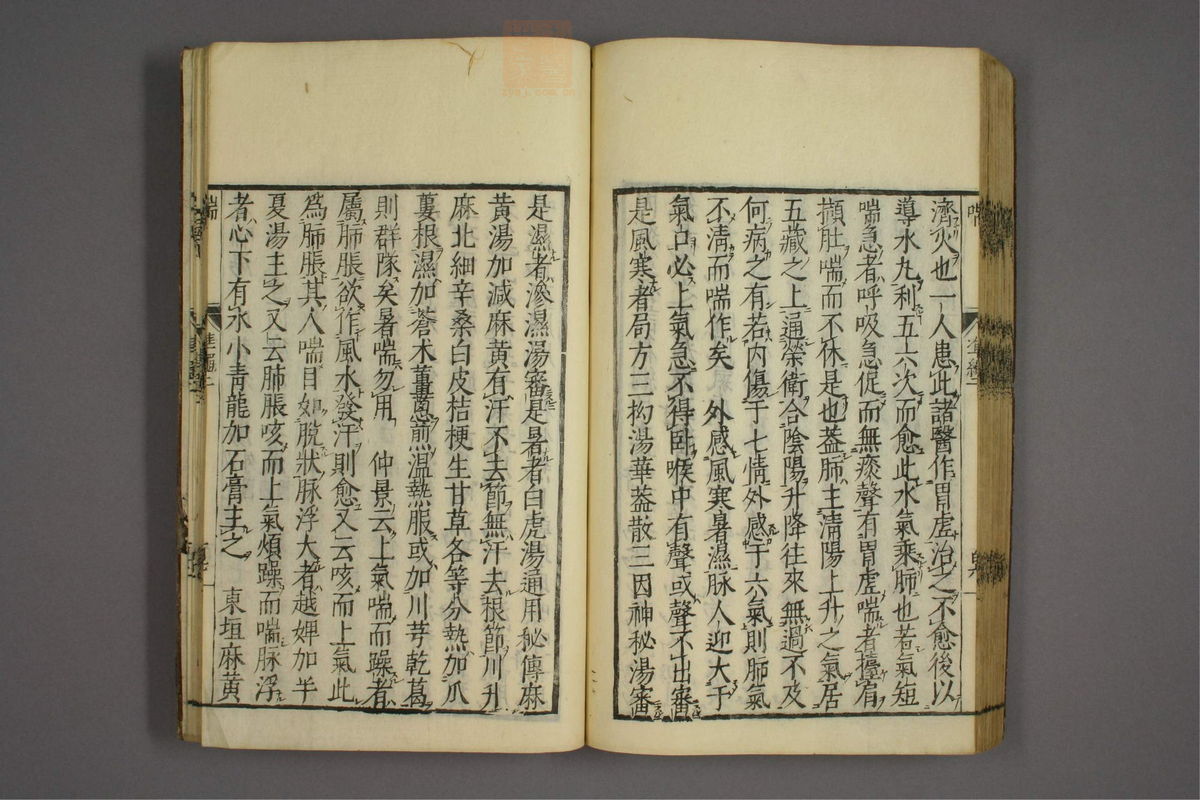 濟火也一人患此諸醫作胃虛治之不愈後以
導水丸利五六次而愈此水氣乘肺也若氣短
喘急者呼吸急促而無痰聲有胃虛喘者擡肩
擷肚喘而不休是也蓋肺主清陽上升之氣居
五藏之上通榮衛合陰陽升降往來無過不及
何病之有若內傷于七情外感于六氣則肺氣
不清而喘作矣　外感風寒暑濕脉人迎大于
氣口必上氣急不得卧喉中有聲或聲不出審
是風寒者局方三拘湯華葢散三因神秘湯審
是濕者滲濕湯審是暑者白虎湯通用秘傳麻
黃湯加減麻黃有汗不去節無汗去根節川升
麻北細辛桑白皮桔梗生甘草各等分熱加瓜
蔞根濕加蒼术薑葱煎温熱服或加川芎乾葛
則群隊矣暑喘勿用　仲景云上氣喘而躁者
屬肺脹欲作風水發汗則愈又云咳而上氣此
爲肺脹其人喘目如脫狀脉浮大者越婢加半
夏湯主之又云肺脹咳而上氣煩躁而喘脉浮
者心下有水小靑龍加石膏主之　東垣麻黃
喘